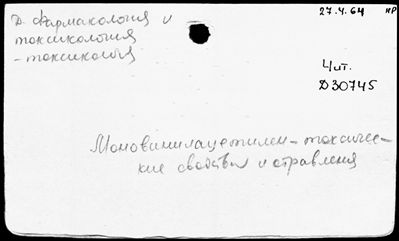 Д. Фармакология и
токсикология
- токсикология
27.4.64 нр
Чит.
D30745
Моновинилацетилен - токсичес-
кие свойства и отравления